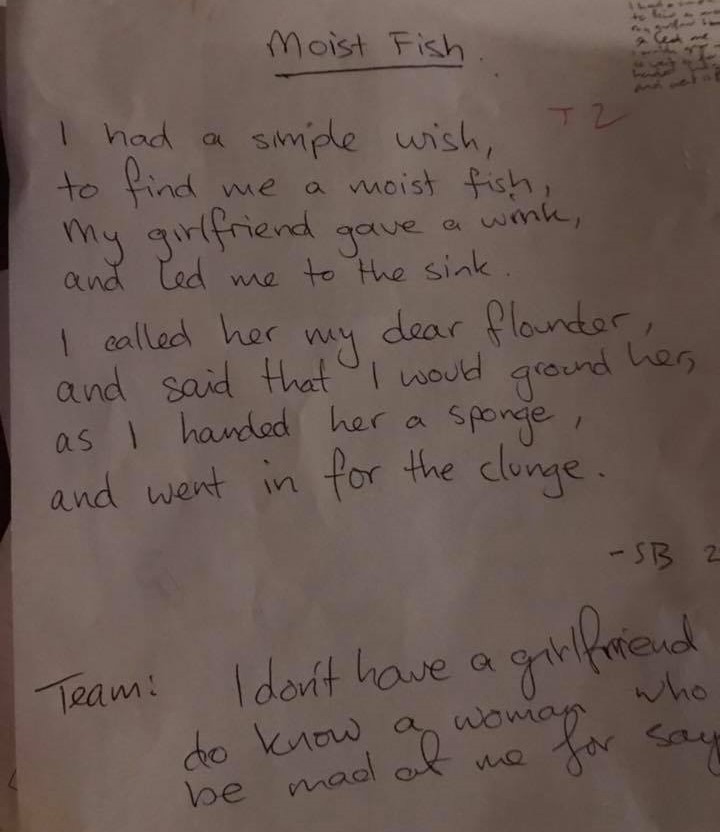 Moist Fish.
T2
I had a simple wish,
to find me a moist fish,
My girlfriend gave a wink,
and led me to the sink.
I called her my dear flounder,
and said that I would ground her,
as I handed her a sponge,
and went in for the clunge.
-SB 2
Team: I don't have a girlfriend
do know a woman who
be mad at me for say